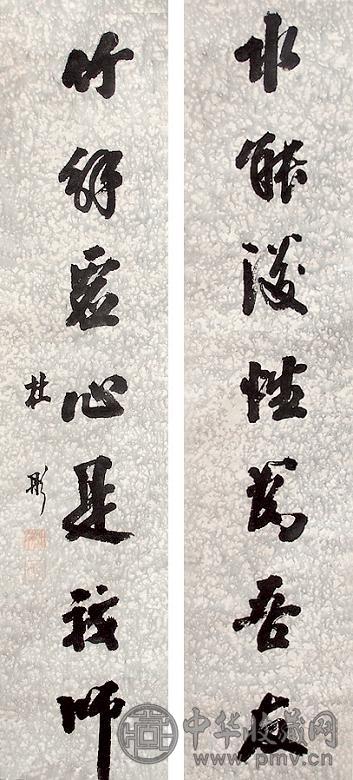 水能淡性為吾友
竹解虛心是我師
杜彤
中华收藏网
www.pmv.cn